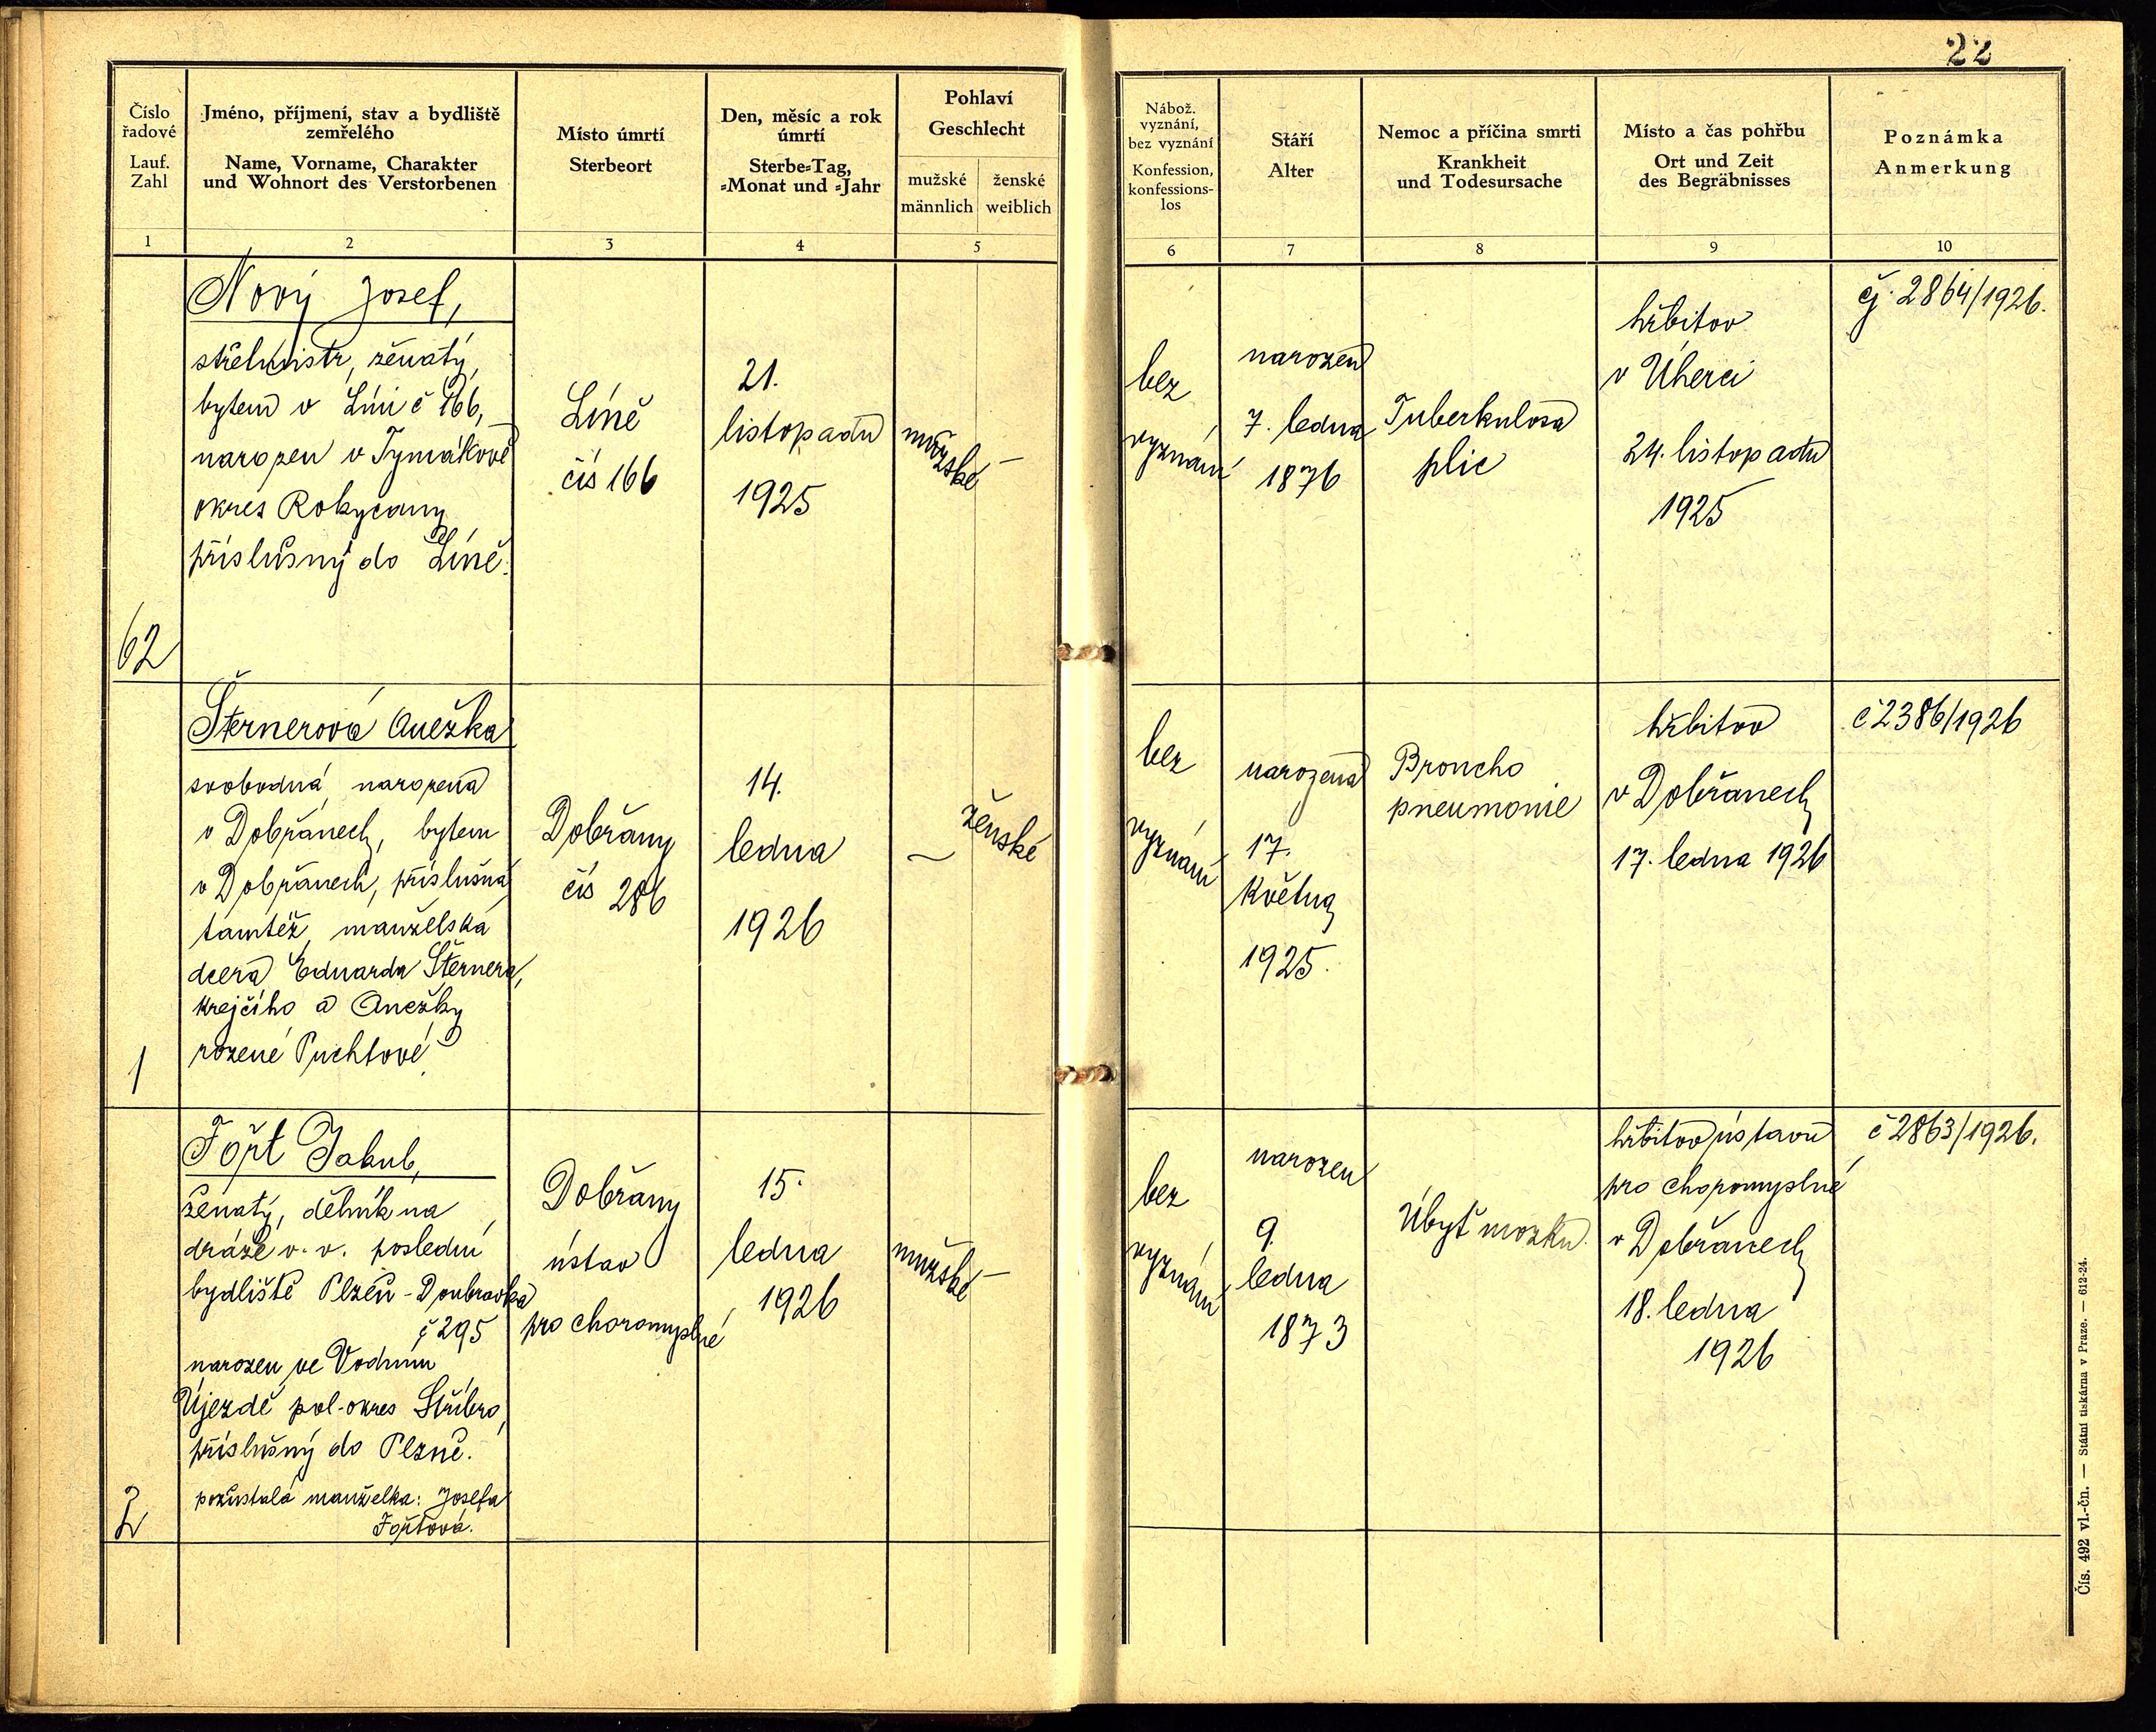 22
Číslo
řadové
Lauf.
Zahl
Jméno, příjmení, stav a bydliště
zemřelého
Name, Vorname, Charakter
und Wohnort des Verstorbenen
Místo úmrtí
Sterbeort
Den, měsíc a rok
úmrtí
Sterbe=Tag,
=Monat und =Jahr
Pohlaví
Geschlecht
mužské
männlich
ženské
weiblich
Nábož.
vyznání,
bez vyznání
Konfession,
konfessions-
los
Stáří
Alter
Nemoc a příčina smrti
Krankheit
und Todesursache
Místo a čas pohřbu
Ort und Zeit
des Begräbnisses
Poznámka
Anmerkung
1
2
3
4
5
6
7
8
9
10
62
Nový Josef,
střelmistr, ženatý,
bytem v Líni č 166,
narozen v Tymákově
okres Rokycany
příslušný do Líně.
Líně
čís 166
21.
listopadu
1925
mužské
—
bez
vyznání
narozen
7. ledna
1876
Tuberkulosa
plic
hřbitov
v Úherci
24. listopadu
1925
čj. 2864/1926.
1
Šternerová Anežka
svobodná, narozena
v Dobřanech, bytem
v Dobřanech, příslušná
tamtéž, manželská
dcera Eduarda Šternera,
krejčího a Anežky
rozené Puchtové.
Dobřany
čís 286
14.
ledna
1926
—
ženské
bez
vyznání
narozena
17.
Května
1925.
Broncho
pneumonie
hřbitov
v Dobřanech
17. ledna 1926
č 2386/1926
2
Fořt Jakub,
ženatý, dělník na
dráze v. v. poslední
bydliště Plzeň - Doubravka
č 295
narozen ve Vodním
Újezdě pol. okres Stříbro,
příslušný do Plzně.
pozůstalá manželka: Josefa
Fořtová.
Dobřany
ústav
pro choromyslné
15.
ledna
1926
mužské
—
bez
vyznání
narozen
9.
ledna
1873
Úbyť mozku.
hřbitov ústavu
pro choromyslné
v Dobřanech
18. ledna
1926
č 2863/1926.
Čís. 492 vl.-čn. — Státní tiskárna v Praze. — 612-24.